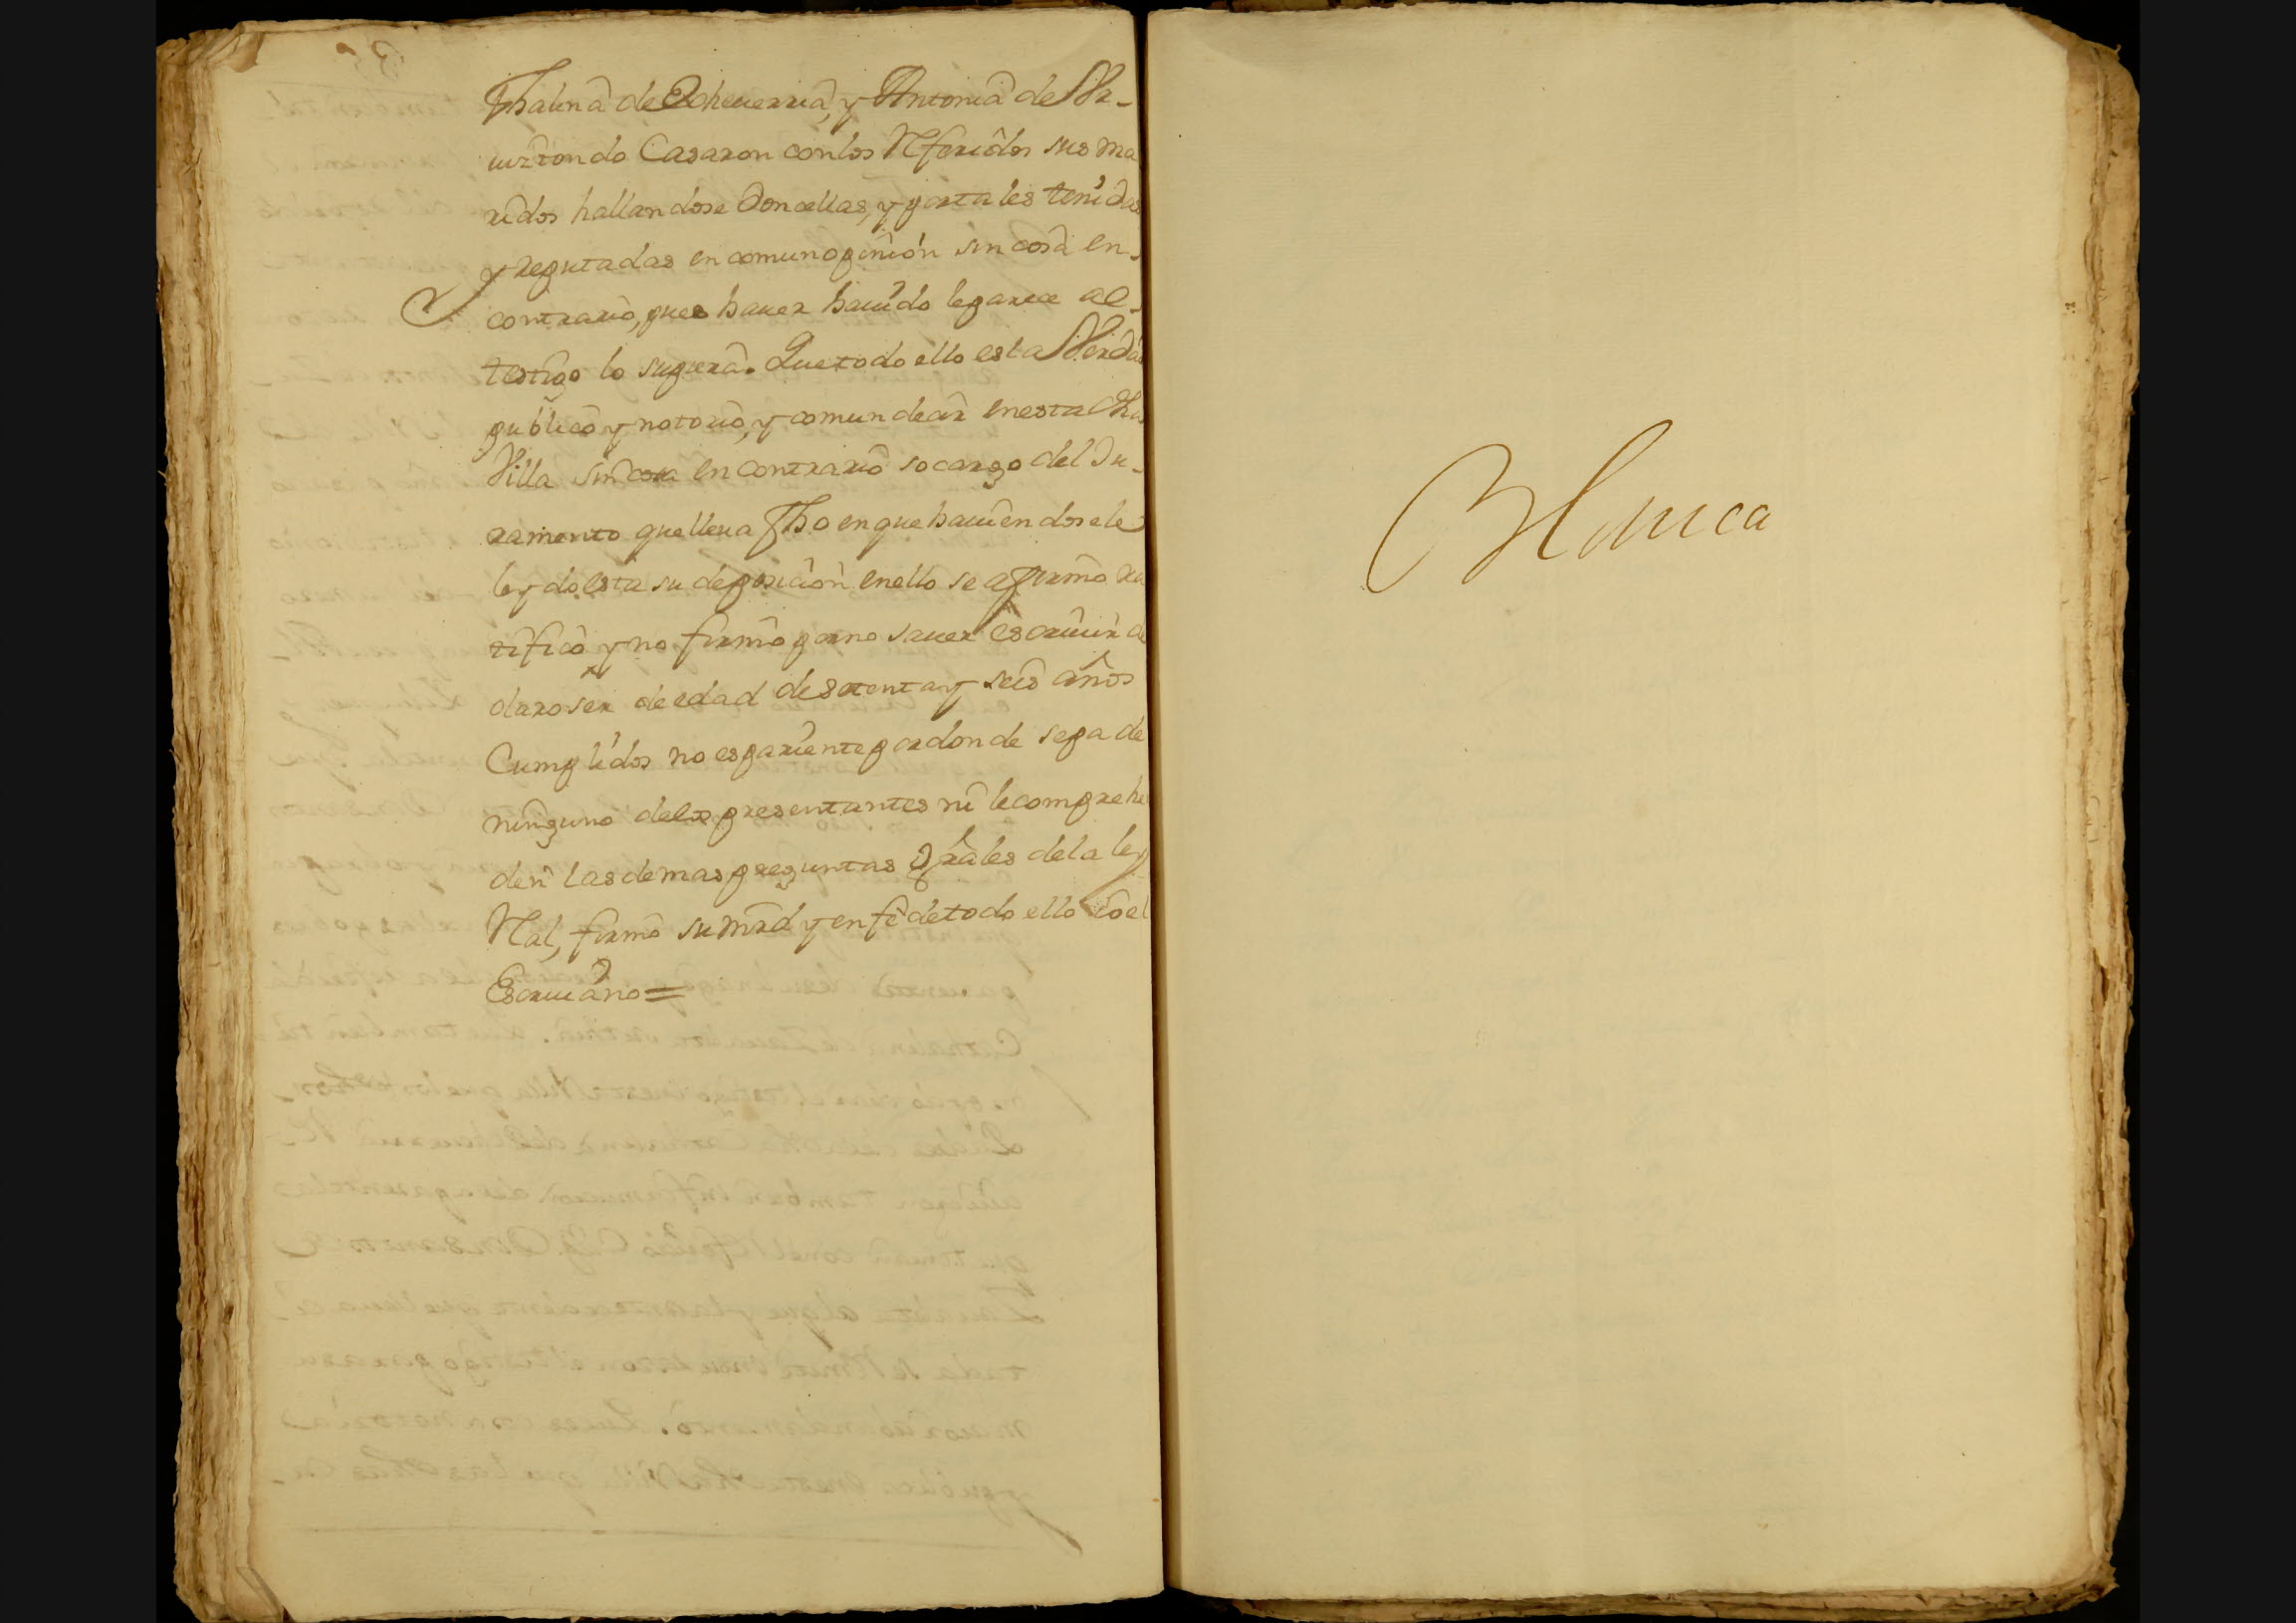 thalina de Echeuerria, y Antonia de Vr-
uiztondo Casaron con los Referidos sus ma
ridos hallandose Doncellas, y portales tenidas
y reputadas en comun opinion sin cosa en-
contrario, pues hauer hauido le pareze al-
testigo lo supiera. Que todo ello es la Verdad
publico y notorio, y comun decir en esta dha
Villa sin cosa en contrario so cargo del Ju-
ramento que lleua fho en que hauiendosele
leydo esta su deposicion en ello se afirmo ra
tifico y no firmo por no sauer escriuir de
claro ser de edad de setenta y seis años
Cumplidos no es pariente por donde sepa de
ninguno de los presentantes ni le comprehe
den las demas preguntas grales de la ley
Ral, firmo su mrd y en fe de todo ello io el
Escriuano =
Blanca